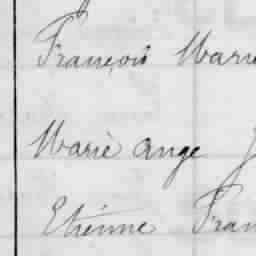 François Marie
Marie ange
Etienne Fran